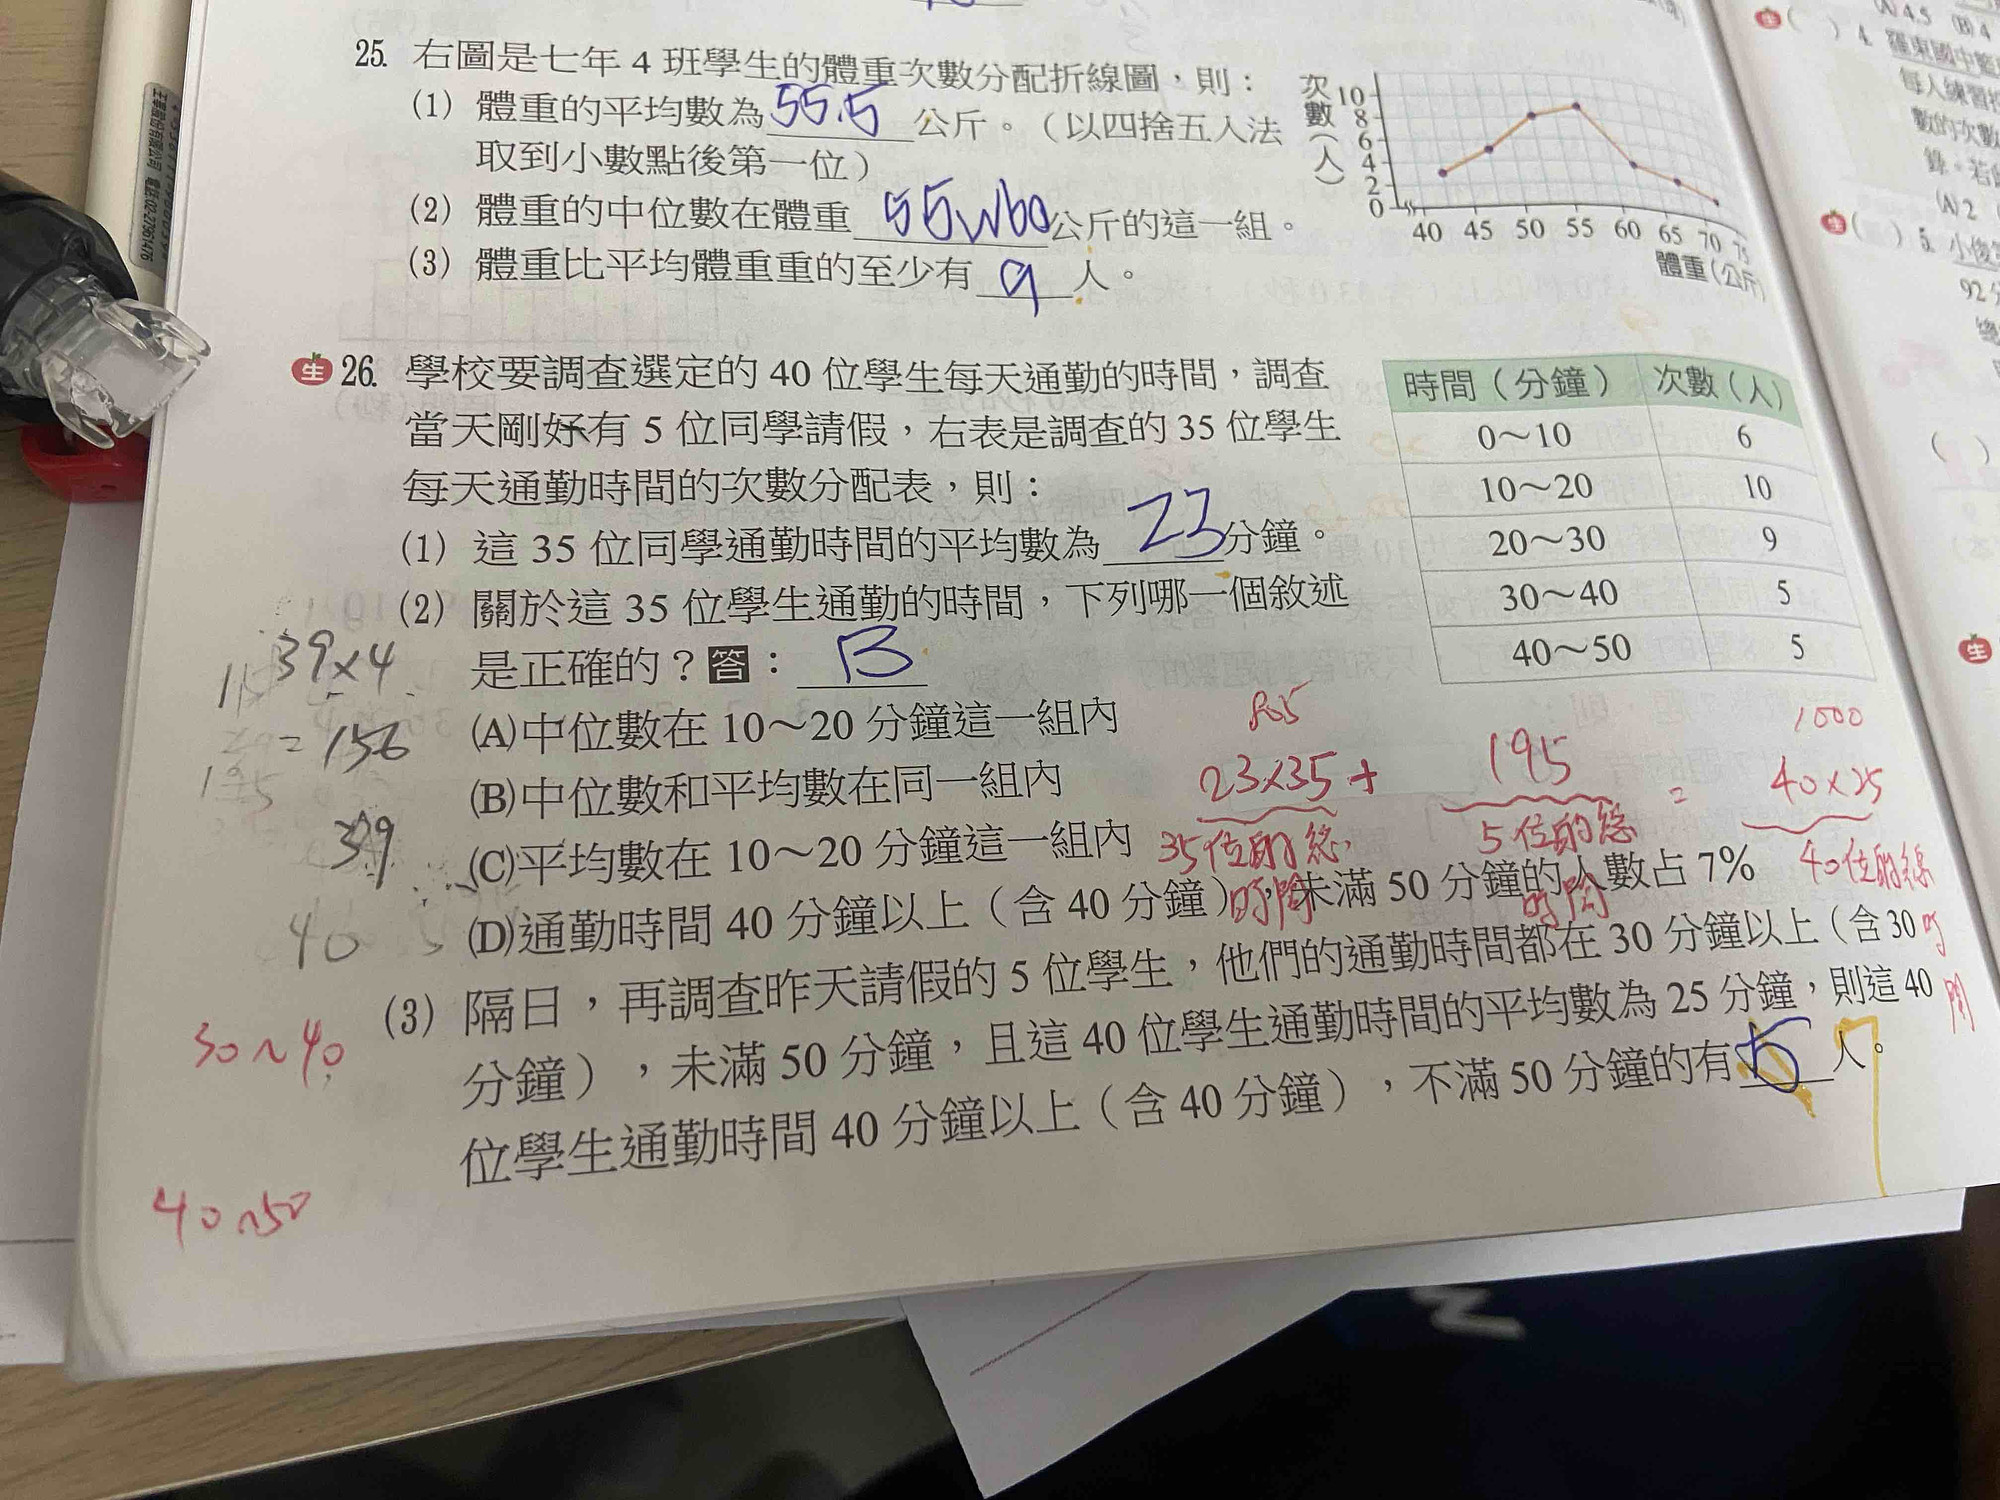 25. 右圖是七年 4 班學生的體重次數分配折線圖，則：
(1) 體重的平均數為 55.5 公斤。（以四捨五入法
取到小數點後第一位）
(2) 體重的中位數在體重 55~60 公斤的這一組。
(3) 體重比平均體重重的至少有 9 人。
次數（人）
10
8
6
4
2
0
40 45 50 55 60 65 70 75
體重（公斤）
生 26. 學校要調查選定的 40 位學生每天通勤的時間，調查
當天剛好有 5 位同學請假，右表是調查的 35 位學生
每天通勤時間的次數分配表，則：
(1) 這 35 位同學通勤時間的平均數為 23 分鐘。
(2) 關於這 35 位學生通勤的時間，下列哪一個敘述
是正確的？答： B
(A)中位數在 10～20 分鐘這一組內
(B)中位數和平均數在同一組內
(C)平均數在 10～20 分鐘這一組內
(D)通勤時間 40 分鐘以上（含 40 分鐘），未滿 50 分鐘的人數占 7%
(3) 隔日，再調查昨天請假的 5 位學生，他們的通勤時間都在 30 分鐘以上（含 30
分鐘），未滿 50 分鐘，且這 40 位學生通勤時間的平均數為 25 分鐘，則這 40
位學生通勤時間 40 分鐘以上（含 40 分鐘），不滿 50 分鐘的有 5 人。
時間（分鐘） 次數（人）
0～10 6
10～20 10
20～30 9
30～40 5
40～50 5
805
1000
23×35 + 195 = 40×25
35位的總時間
5位的總時間
40位的總時間
39×4
= 156
39
40
30~40
40~50
生( ) 4. 羅東國中籃
每人練習投
數的次數
錄。若
(A) 2
生( ) 5. 小俊
92分
(A) 4.5 (B) 4
生
電話:02-27961476